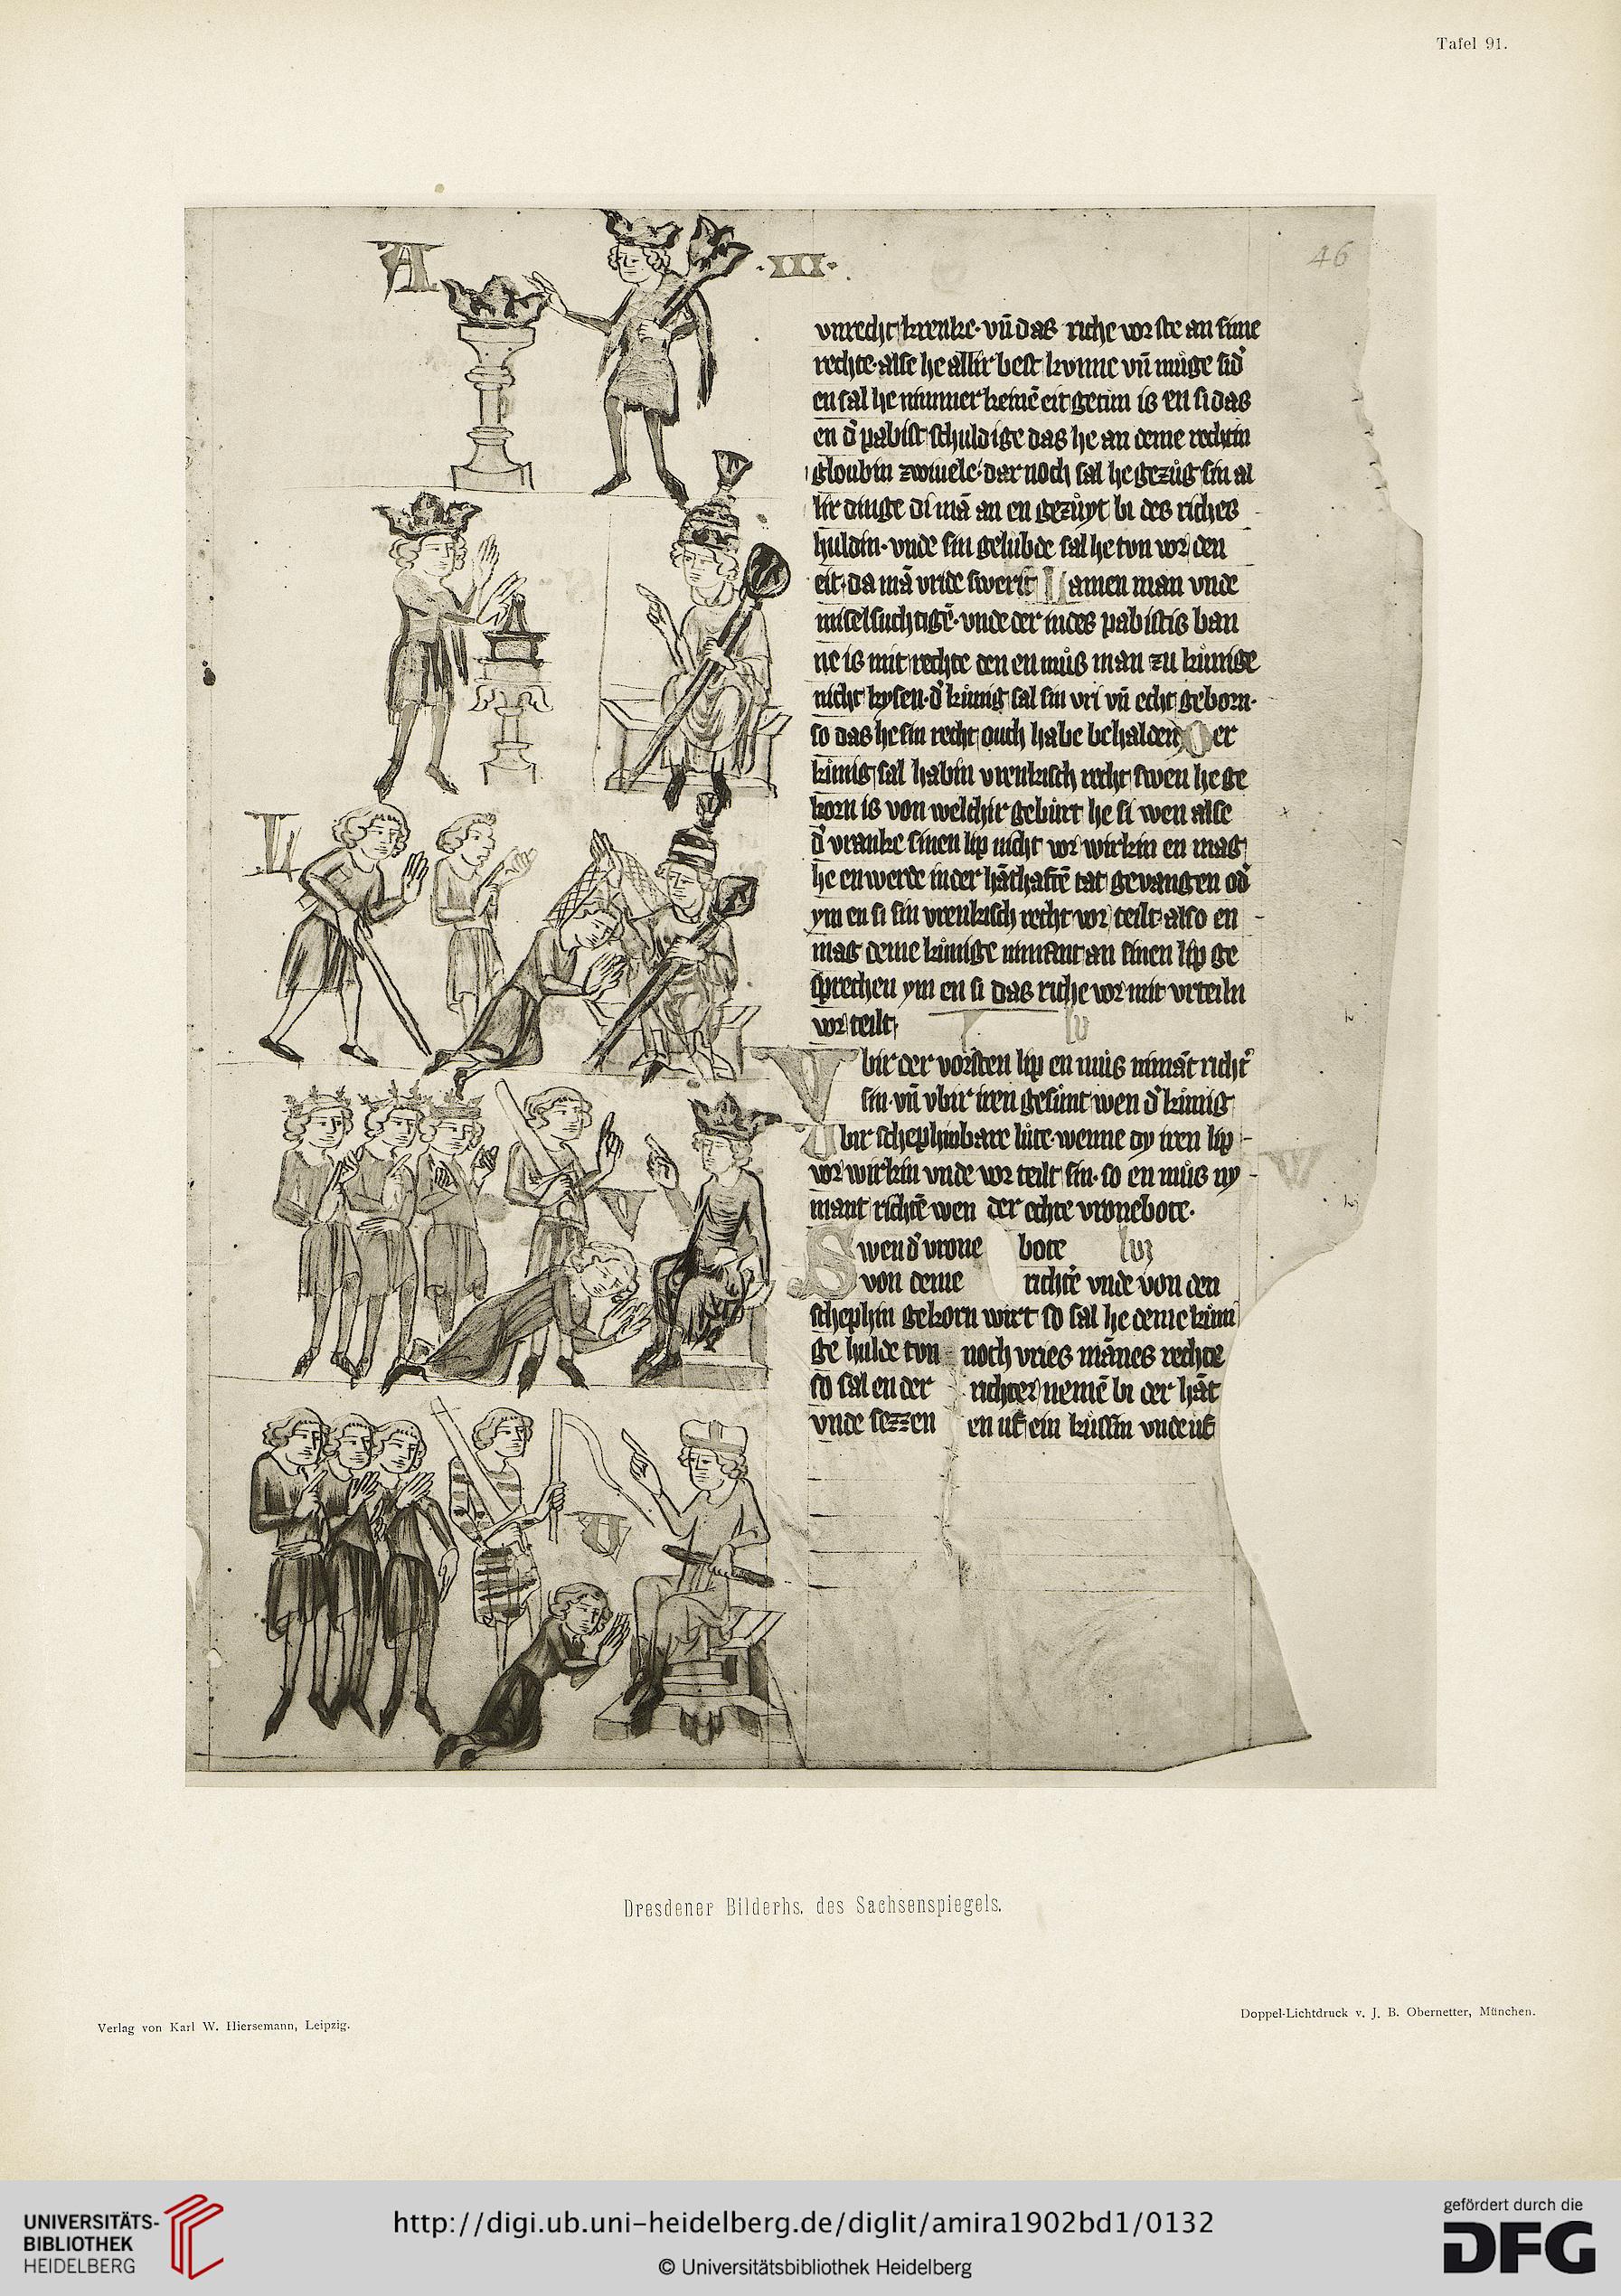 Tafel 91.
46
A
·III·
vnrecht krenke· vn̄ das riche vor ste an sime
rechte· alse he allir best kvnne vn̄ mu̇ge sid'
en sal he nimmer keinē eit getun is en si das
en d' pabist schuldige das he an deme rechtin
gloubin zwiuele· dar noch sal he gezu̇g sin al
lir dinge di mā an en gezu̇yt bi des riches
huldin· vnde sin gelubde sal he tvn vor den
eit· da mā vride swerit Lamen man vnde
miselsuchtigē· vnde der in des pabistis ban
ne is mit rechte den en mu̇s man zu ku̇nige
nicht kysen· d' ku̇nig sal sin vri vn̄ echt geborn·
so das he sin recht ouch habe behalden Der
kunig sal habin vrenkisch recht swen he ge
korn is von welchir geburt he si wen alse
d' vranke sinen lip nicht vor wirkin en mag
he en werde in der hāthaftē tat gevangen od'
ym en si sin vrenkisch recht vor teilt· also en
mag deme ku̇nige nimant an sinen lip ge
sprechen ym en si das riche vor mit vrteiln
vor teilt·
L
Vbir der vorsten lip en mu̇s nimāt richt'
sin· vn̄ vbir iren gesunt wen d' ku̇nig
Vbir schephinbare lu̇te· wenne dy iren lip
vor wirkin vnde vor teilt sin· so en mu̇s ny
mant richtē wen der echte vronebote·
V
W
Swen d' vrone bote
von deme richt'e vnde von den
schephin gekorn wirt so sal he deme kuni
ge hulde tvn noch vries mānes rechte
so sal en der richter nemē bi der hāt
vnde sezzen en uf ein ku̇ssin vnde uf
Dresdener Bilderhs. des Sachsenspiegels.
Verlag von Karl W. Hiersemann, Leipzig.
Doppel-Lichtdruck v. J. B. Obernetter, München.
UNIVERSITÄTS-
BIBLIOTHEK
HEIDELBERG
http://digi.ub.uni-heidelberg.de/diglit/amira1902bd1/0132
© Universitätsbibliothek Heidelberg
gefördert durch die
DFG